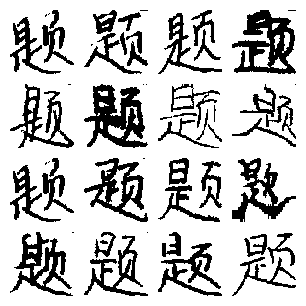 题题题题
题题题题
题题题题
题题题题